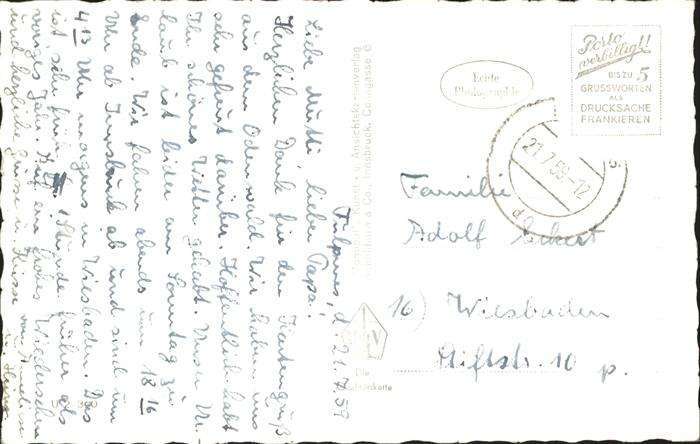 Fulpmes, d. 21.7.59
Liebe Mutti, lieber Papa!
Herzlichen Dank für den Kartengruß
aus dem Odenwald. Wir haben uns
sehr gefreut darüber. Hoffentlich habt
Ihr schönes Wetter gehabt. Unser Ur-
laub ist leider am Sonntag zu
Ende. Wir fahren abends um 18 16
Uhr ab Innsbruck ab und sind um
4 13 Uhr morgens in Wiesbaden. Das
ist sehr früh, 1 Stunde früher als
voriges Jahr. Auf ein frohes Wiedersehen
und herzliche Grüsse u. Küsse von
u. Heinz
Echte
Photographie
Porto
verbilligt!
BIS ZU 5
GRUSSWORTEN
ALS
DRUCKSACHE
FRANKIEREN
21.7.59-12
Familie
Adolf Eckert
16) Wiesbaden
Stiftstr. 10 p.
u. Ansichtskartenverlag
& Co., Innsbruck,
Die